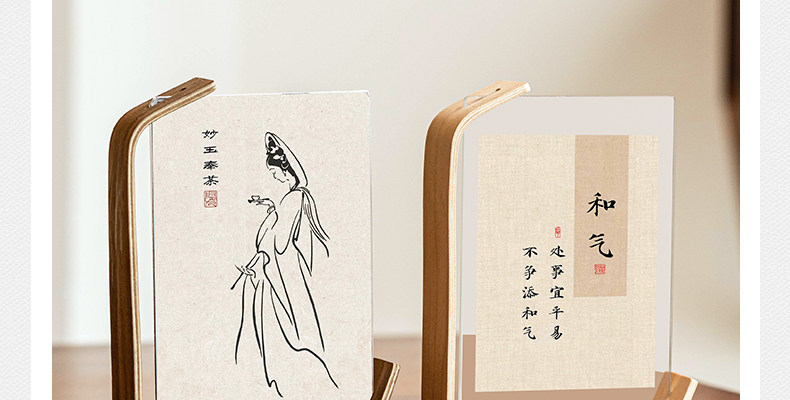 妙玉奉茶
和气
处事宜平易
不争添和气